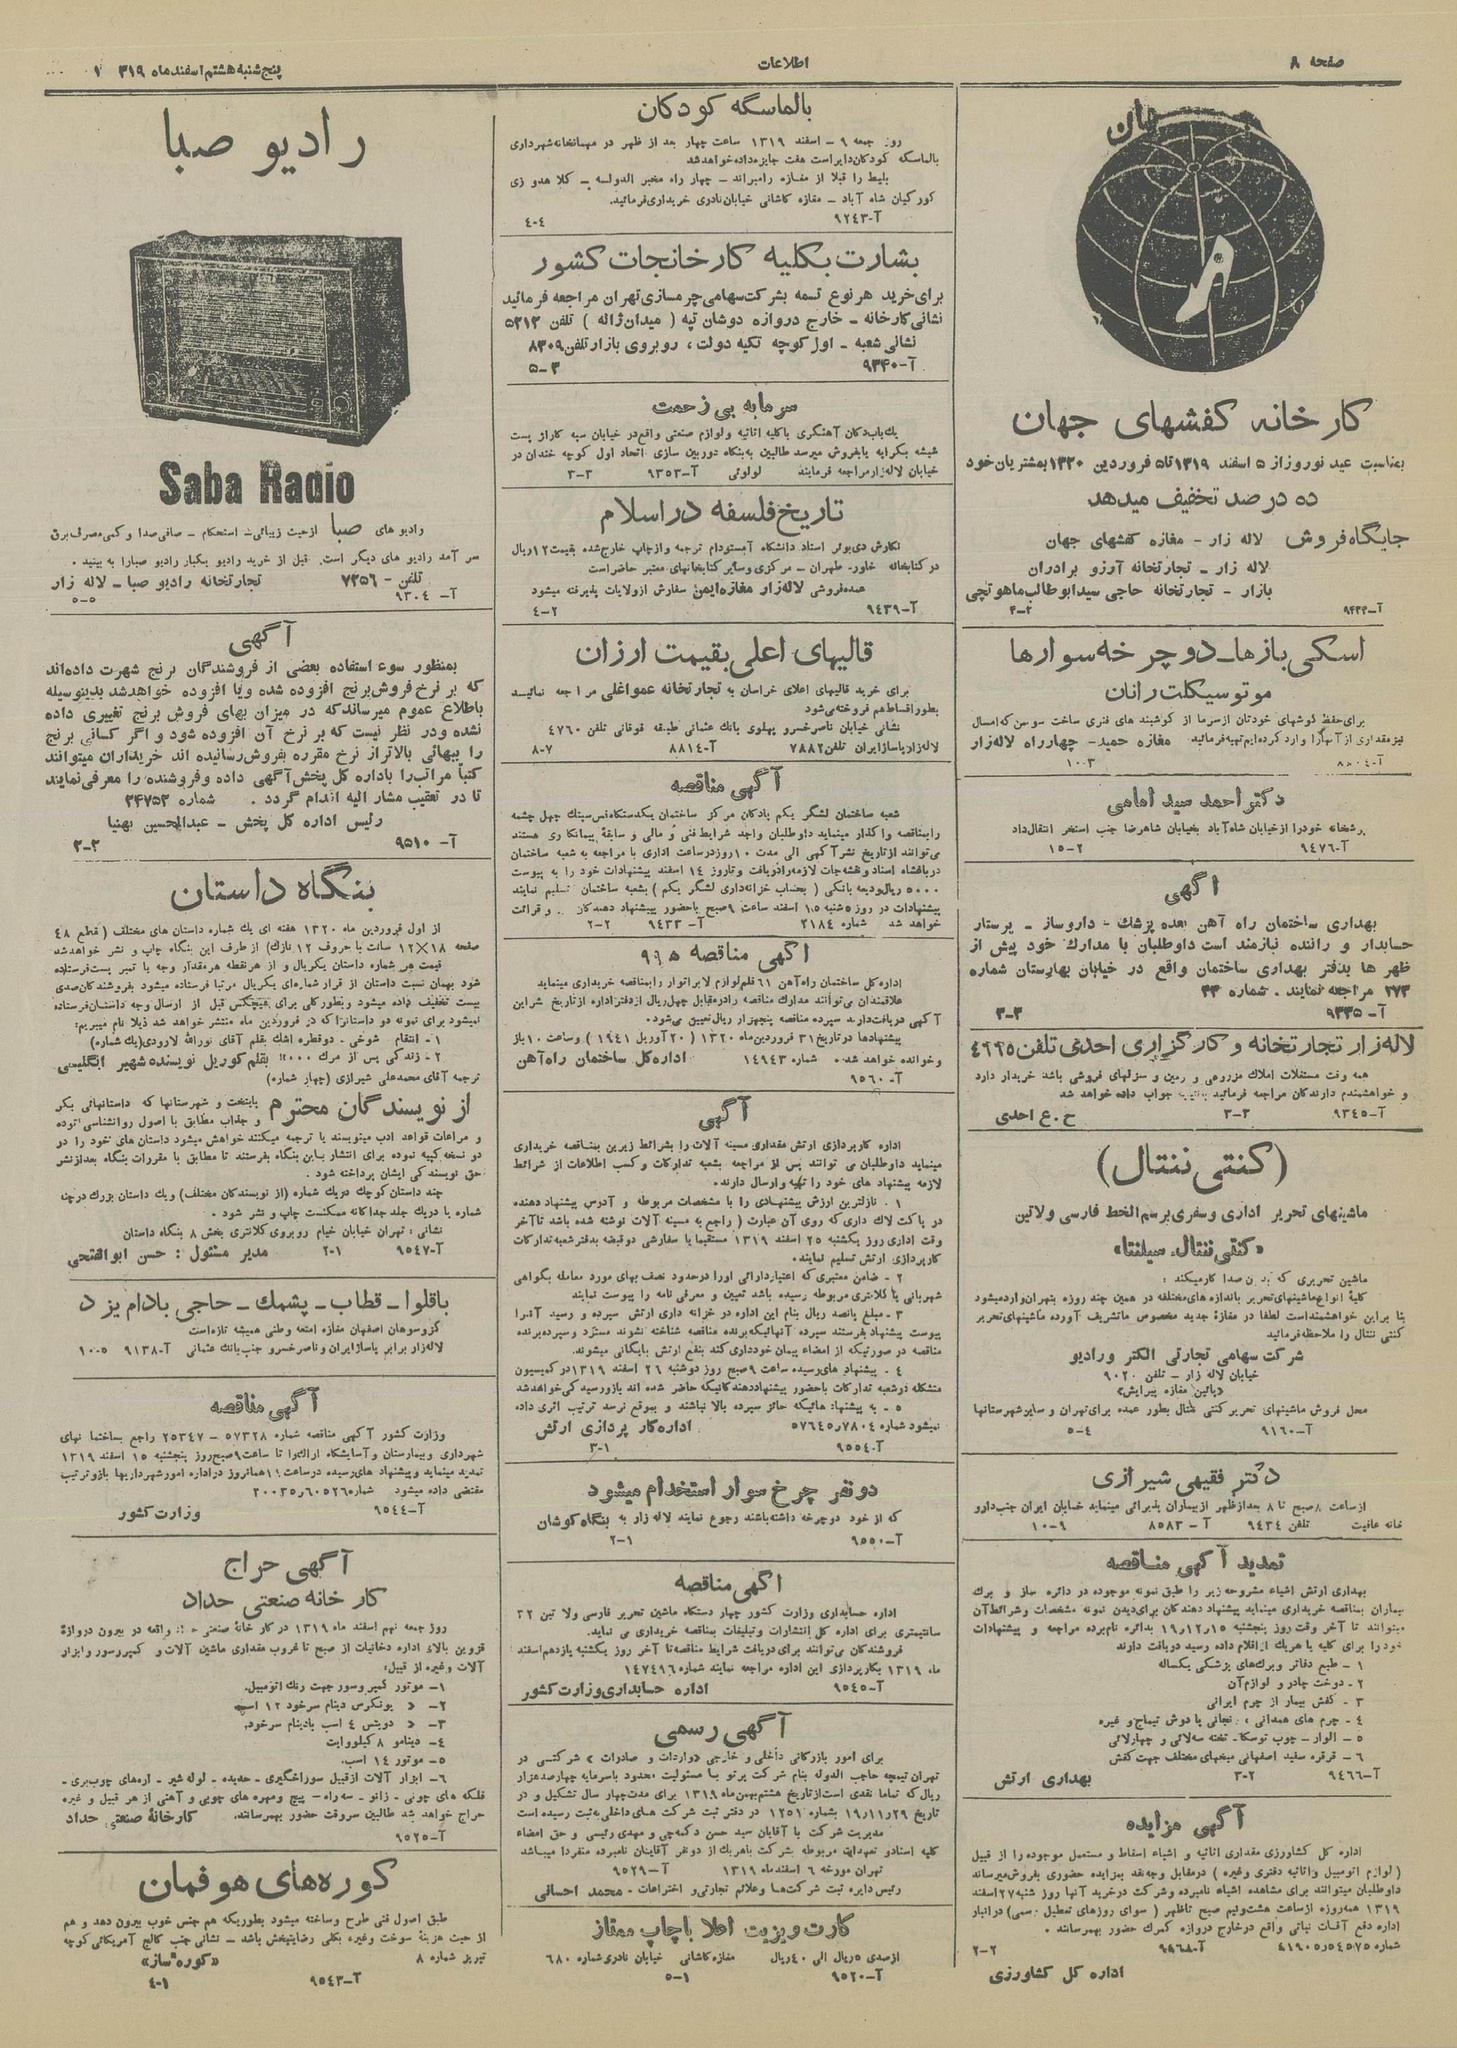 صفحه ۸
اطلاعات
پنج‌شنبه هشتم اسفند ماه ۱۳۱۹
کارخانه کفشهای جهان
بمناسبت عید نوروز از ۵ اسفند ۱۳۱۹ تا ۵ فروردین ۱۳۲۰ بمشتریان خود
ده در صد تخفیف میدهد
جایگاه فروش لاله زار - مغازه کفشهای جهان
لاله زار - تجارتخانه آرزو برادران
بازار - تجارتخانه حاجی سید ابوطالب ماهوتچی
۲-۴
اسکی بازها - دو چرخه سوارها
موتوسیکلت رانان
برای حفظ گوشهای خودتان از سرما از گوشبند های فنری ساخت سوس که امسال
نیز مقداری از آنها را وارد کرده‌ایم تهیه فرمائید مغازه حمید - چهارراه لاله‌زار
آ-۸۸۰۴ ۱۰-۳
دکتر احمد سید امامی
خود را از خیابان شاه‌آباد بخیابان شاهرضا جنب استخر انتقال داد
آ-۹۴۷۶ ۱۵-۲
آگهی
بهداری ساختمان راه آهن بعده پزشك - داروساز - پرستار
حسابدار و راننده نیازمند است داوطلبان با مدارك خود پیش از
ظهر ها بدفتر بهداری ساختمان واقع در خیابان بهارستان شماره
۲۷۳ مراجعه نمایند . شماره ۳۳
آ-۹۳۳۵ ۳-۳
لاله‌زار تجارتخانه و کارگزاری احدی تلفن ۴۶۶۵
همه وقت مستغلات املاك مزروعی و زمین و منزلهای فروشی باشد خریدار دارد
و خواهشمندم دارندگان مراجعه فرمائید جواب داده خواهد شد
آ-۹۳۴۵ ۳-۳ ح.ع احدی
(کنتی ننتال)
ماشینهای تحریر اداری و سفری برسم‌الخط فارسی و لاتین
«کنتی ننتال، سیلنتا»
ماشین تحریری که بدون صدا کار میکند :
کلیهٔ انواع ماشینهای تحریر باندازه های مختلفه در همین چند روزه بتهران وارد میشود
بنا براین خواهشمند است لطفا در مغازهٔ جدید مخصوص ما تشریف آورده ماشینهای تحریر
کنتی ننتال را ملاحظه فرمائید
شرکت سهامی تجارتی الکتر و رادیو
خیابان لاله زار - تلفن ۹۰۲۰
«پائین مغازه پیرایش»
محل فروش ماشینهای تحریر کنتی ننتال بطور عمده برای تهران و سایر شهرستانها
آ-۹۱۶۰ ۵-۴
دکتر فقیهی شیرازی
از ساعت ۸ صبح تا ۸ بعد از ظهر از بیماران پذیرائی مینماید خیابان ایران جنب دارو
خانه عافیت تلفن ۹۴۳۴ آ-۸۵۸۳ ۱۰-۹
تمدید آگهی مناقصه
بهداری ارتش اشیاء مشروحه زیر را طبق نمونه موجوده در دائره ساز و برك
بیماران بمناقصه خریداری مینماید پیشنهاد دهندگان برای دیدن نمونه مشخصات و شرائط آن
میتوانند تا آخر وقت روز پنجشنبه ۱۹/۱۲/۱۵ بدائره نامبرده مراجعه و پیشنهادات
خود را برای کلیه یا هریك از اقلام داده رسید دریافت دارند
۱ - طبع دفاتر و برك‌های پزشکی یکساله
۲ - دوخت چادر و لوازم آن
۳ - کفش بیمار از چرم ایرانی
۴ - چرم های همدانی ، نجاتی یا دوش تیماج و غیره
۵ - الوار - چوب توسکا - تخته سه‌لائی و چهارلائی
۶ - قرقره سفید اصفهانی میخهای مختلف جهت کفش
آ-۹۴۶۶ ۳-۲ بهداری ارتش
آگهی مزایده
اداره کل کشاورزی مقداری اثاثیه و اشیاء اسقاط و مستعمل موجوده را از قبیل
(لوازم اتومبیل و اثاثیه دفتری و غیره) در مقابل وجه نقد بمزایده حضوری بفروش میرساند
داوطلبان میتوانند برای مشاهده اشیاء نامبرده و شرکت در خرید آنها روز شنبه ۲۷ اسفند
۱۳۱۹ همه روزه از ساعت هشت و نیم صبح تا ظهر (سوای روزهای تعطیل رسمی) در انبار
اداره دفع آفات نباتی واقع در خارج دروازه گمرك حضور بهمرسانند .
۲-۲
اداره کل کشاورزی
بالماسکه کودکان
روز جمعه ۹ - اسفند ۱۳۱۹ ساعت چهار بعد از ظهر در میهمانخانه شهرداری
بالماسکه کودکان دایر است هفت جایزه داده خواهد شد
بلیط را قبلا از مغازه رامبراند - چهار راه مخبر الدوله - کلا هدو زی
کورکیان شاه آباد - مغازه کاشانی خیابان نادری خریداری فرمائید.
آ-۹۲۴۳ ۴-۴
بشارت بکلیه کارخانجات کشور
برای خرید هر نوع تسمه بشرکت سهامی چرمسازی تهران مراجعه فرمائید
نشانی کارخانه - خارج دروازه دوشان تپه (میدان ژاله) تلفن ۵۲۱۳
نشانی شعبه - اول کوچه تکیه دولت ، روبروی بازار تلفن ۸۳۰۹
آ-۹۳۴۰ ۵-۳
سرمایه بی زحمت
یك باب دکان آهنگری با کلیه اثاثیه و لوازم صنعتی واقع در خیابان سپه گاراژ پست
شیشه بکرایه یا بفروش میرسد طالبین به بنگاه دوربین سازی اتحاد اول کوچه خندان در
خیابان لاله‌زار مراجعه فرمایند لولوئی آ-۹۳۵۳ ۳-۳
تاریخ فلسفه در اسلام
نگارش دی‌بوئر استاد دانشگاه آمستردام ترجمه و از چاپ خارج شده بقیمت ۱۲ ریال
در کتابخانه خاور - طهران - مرکزی و سایر کتابخانهای معتبر حاضر است
عمده فروشی لاله‌زار مغازه ایمن سفارش از ولایات پذیرفته میشود
آ-۹۴۳۹ ۴-۲
قالیهای اعلی بقیمت ارزان
برای خرید قالیهای اعلای خراسان به تجارتخانه عمواغلی مراجعه نمائید
بطور اقساط هم فروخته می‌شود
نشانی خیابان ناصرخسرو پهلوی بانك عثمانی طبقه فوقانی تلفن ۴۷۶۰
لاله‌زار پاساژ ایران تلفن ۷۸۸۲ آ-۸۸۱۴ ۸-۷
آگهی مناقصه
شعبه ساختمان لشگر یکم پادگان مرکز ساختمان یکدستگاه چهل چشمه
را بمناقصه واگذار مینماید داوطلبان واجد شرایط فنی و مالی و سابقهٔ پیمانکاری هستند
می‌توانند از تاریخ نشر آگهی الی مدت ۱۰ روز در ساعت اداری با مراجعه به شعبه ساختمان
درباغشاه اسناد و نقشه‌جات لازمه را دریافت و تا روز ۱۴ اسفند پیشنهادات خود را به پیوست
۵۰۰۰ ریال ودیعه بانکی (بحساب خزانه‌داری لشگر یکم) بشعبه ساختمان تسلیم نمایند
پیشنهادات در روز ۵ شنبه ۱۵ اسفند ساعت ۹ صبح با حضور پیشنهاد دهندگان و قرائت
خواهد شد شماره ۲۱۸۴ آ-۹۴۳۳ ۲-۲
آگهی مناقصه
اداره کل ساختمان راه‌آهن ۶۱ قلم لوازم لابراتوار را بمناقصه خریداری مینماید
علاقمندان می‌توانند مدارك مناقصه را در مقابل چهل ریال از دفتر اداره از تاریخ نشر این
آگهی دریافت دارند سپرده مناقصه پنجهزار ریال تعیین می‌شود.
پیشنهادها در تاریخ ۳۱ فروردین ماه ۱۳۲۰ (۲۰ آوریل ۱۹۴۱) و ساعت ۱۰ باز
و خوانده خواهد شد شماره ۱۴۹۴۳ اداره کل ساختمان راه‌آهن
آ-۹۵۶۰
آگهی
اداره کارپردازی ارتش مقداری مسینه آلات را بشرائط زیرین بمناقصه خریداری
مینماید داوطلبان می توانند پس از مراجعه بشعبه تدارکات و کسب اطلاعات از شرائط
لازمه پیشنهاد های خود را تهیه و ارسال دارند.
۱ - نازلترین ارزش پیشنهادی را با مشخصات مربوطه و آدرس پیشنهاد دهنده
در پاکت لاك داری که روی آن عبارت (راجع به مسینه آلات نوشته شده باشد تا آخر
وقت اداری روز یکشنبه ۲۵ اسفند ۱۳۱۹ مستقیما یا سفارشی دو قبضه بدفتر شعبه تدارکات
کارپردازی ارتش تسلیم نمایند.
۲ - ضامن معتبری که اعتبار دارائی او را در حدود نصف بهای مورد معامله بگواهی
شهربانی یا کلانتری مربوطه رسیده باشد تعیین و معرفی نامه را پیوست نمایند
۳ - مبلغ پانصد ریال بنام این اداره در خزانه داری ارتش سپرده و رسید آنرا
پیوست پیشنهاد بفرستند سپرده آنهائیکه برنده مناقصه شناخته نشوند مسترد و سپرده برنده
مناقصه در صورتیکه از امضاء پیمان خودداری کند بنفع ارتش بایگانی میشود.
۴ - پیشنهاد های رسیده ساعت ۹ صبح روز دوشنبه ۲۶ اسفند ۱۳۱۹ در کمیسیون
متشکله در شعبه تدارکات با حضور پیشنهاد دهندگانیکه حاضر شده اند باز و رسیدگی خواهد شد
۵ - به پیشنهاد هائیکه حائز سپرده بالا نباشند و بموقع نرسد ترتیب اثری داده
نمیشود شماره ۷۸۰۴ر۵۷۶۴۵ اداره کار پردازی ارتش
آ-۹۵۵۴ ۳-۱
دو نفر چرخ سوار استخدام میشود
که از خود دوچرخه داشته باشند رجوع نمایند لاله زار به بنگاه کوشان
آ-۹۵۵۰ ۲-۱
آگهی مناقصه
اداره حسابداری وزارت کشور چهار دستگاه ماشین تحریر فارسی و لاتین ۳۲
سانتیمتری برای اداره کل انتشارات و تبلیغات بمناقصه خریداری می نماید.
فروشندگان می‌توانند برای دریافت شرایط مناقصه تا آخر روز یکشنبه یازدهم اسفند
ماه ۱۳۱۹ بکارپردازی این اداره مراجعه نمایند شماره ۱۴۷۴۹۶
آ-۹۵۴۵ اداره حسابداری وزارت کشور
آگهی رسمی
برای امور بازرگانی داخلی و خارجی «واردات و صادرات» شرکتی در
تهران تیمچه حاجب الدوله بنام شرکت پرتو با مسئولیت محدود با سرمایه چهارصد هزار
ریال که تماما نقدی است از تاریخ هشتم بهمن ماه ۱۳۱۹ برای مدت چهار سال تشکیل و در
تاریخ ۱۹/۱۱/۲۹ بشماره ۱۲۵۱ در دفتر ثبت شرکت های داخلی به ثبت رسیده است
مدیریت شرکت با آقایان سید حسن دکمه‌چی و مهدی رئیسی و حق امضاء
کلیه اسناد و تعهدات مربوطه بشرکت با هریك از دو نفر آقایان نامبرده منفردا میباشد
تهران مورخه ۶ اسفند ماه ۱۳۱۹ آ-۹۵۲۹
رئیس دایره ثبت شرکت‌ها و علائم تجارتی و اختراعات - محمد احسانی
کارت ویزیت اعلا با چاپ ممتاز
از صدی ۵ ریال الی ۴۰ ریال مغازه کاشانی خیابان نادری شماره ۶۸۰
آ-۹۵۲۰ ۵-۱
رادیو صبا
Saba Radio
رادیو های صبا از حیث زیبائی - استحکام - صافی صدا و کمی مصرف برق
سر آمد رادیو های دیگر است. قبل از خرید رادیو یکبار رادیو صبا را به بینید .
تلفن - ۷۳۵۶ تجارتخانه رادیو صبا - لاله زار
آ-۹۳۰۴ ۵-۵
آگهی
بمنظور سوء استفاده بعضی از فروشندگان برنج شهرت داده‌اند
که بر نرخ فروش برنج افزوده شده و یا افزوده خواهد شد بدینوسیله
باطلاع عموم میرساند که در میزان بهای فروش برنج تغییری داده
نشده و در نظر نیست که بر نرخ آن افزوده شود و اگر کسانی برنج
را ببهائی بالاتر از نرخ مقرره بفروش رسانیده اند خریداران میتوانند
کتباً مراتب را باداره کل پخش آگهی داده و فروشنده را معرفی نمایند
تا در تعقیب مشار الیه اقدام گردد . شماره ۲۴۷۵۲
رئیس اداره کل پخش - عبدالحسین بهنیا
آ-۹۵۱۰ ۳-۲
بنگاه داستان
از اول فروردین ماه ۱۳۲۰ هفته ای یك شماره داستان های مختلف (قطع ۴۸
صفحه ۱۸×۱۲ سانت با حروف ۱۲ نازك) از طرف این بنگاه چاپ و نشر خواهد شد
قیمت هر شماره داستان یکریال و از هر نقطه هر مقدار وجه یا تمبر پست فرستاده
شود بهمان نسبت داستان از قرار شماره‌ای یکریال مرتبا فرستاده میشود بفروشندگان صدی
بیست تخفیف داده میشود و بطور کلی برای هیچکس قبل از ارسال وجه داستان فرستاده
نمیشود برای نمونه دو داستان را که در فروردین ماه منتشر خواهد شد ذیلا نام میبریم:
۱ - انتقام شوخی - دو قطره اشك بقلم آقای نورالله لارودی (یك شماره)
۲ - زندگی پس از مرك ۲۰۰۰!! بقلم کوریل نویسنده شهیر انگلیسی
ترجمه آقای محمد علی شیرازی (چهار شماره)
از نویسندگان محترم پایتخت و شهرستانها که داستانهائی بکر
و جذاب مطابق با اصول روانشناسی توده
و مراعات قواعد ادب مینویسند یا ترجمه میکنند خواهش میشود داستان های خود را در
دو نسخه کپیه نموده برای انتشار باین بنگاه بفرستند تا مطابق با مقررات بنگاه بعد از نشر
حق نویسندگی ایشان پرداخته شود .
چند داستان کوچك در یك شماره (از نویسندگان مختلف) و یك داستان بزرك در چند
شماره یا در یك جلد جداگانه ممکنست چاپ و نشر شود .
نشانی : تهران خیابان خیام روبروی کلانتری بخش ۸ بنگاه داستان
آ-۹۵۴۷ ۲-۱ مدیر مسئول : حسن ابوالفتحی
باقلوا - قطاب - پشمك - حاجی بادام یزد
گز و سوهان اصفهان مغازه امتعه وطنی همیشه تازه است
لاله‌زار برابر پاساژ ایران و ناصرخسرو جنب بانك عثمانی آ-۹۱۳۸ ۱۰-۵
آگهی مناقصه
وزارت کشور آگهی مناقصه شماره ۵۷۳۲۸ - ۲۵۳۴۷ راجع بساختما نهای
شهرداری و بیمارستان و آسایشگاه اراك را تا ساعت ۹ صبح روز پنجشنبه ۱۵ اسفند ۱۳۱۹
تمدید مینماید و پیشنهاد های رسیده در ساعت ۱۱ همانروز در اداره امور شهرداریها باز و ترتیب
مقتضی داده میشود شماره ۶۰۵۲۶ر۲۰۰۳۵
آ-۹۵۴۴ وزارت کشور
آگهی حراج
کارخانه صنعتی حداد
روز جمعه نهم اسفند ماه ۱۳۱۹ در کارخانهٔ صنعتی حداد واقعه در بیرون دروازهٔ
قزوین بالاء اداره دخانیات از صبح تا غروب مقداری ماشین آلات و کمپرسور و ابزار
آلات و غیره از قبیل:
۱- موتور کمپرسور جهت رنك اتومبیل.
۲- « یونکرس دینام سرخود ۱۲ اسب
۳- « دویتس ۴ اسب بادینام سرخود.
۴- دینامو ۸ کیلووایت
۵- موتور ۱۴ اسب.
۶- ابزار آلات از قبیل سوراخگیری - حدیده - لوله شیر - اره‌های چوب‌بری -
فلکه های چوبی - زانو - سه‌راه - پیچ ومهره های چوبی و آهنی از هر قبیل و غیره
حراج خواهد شد طالبین سروقت حضور بهمرسانند. کارخانهٔ صنعتی حداد
آ-۹۵۲۵
کوره‌های هوفمان
طبق اصول فنی طرح و ساخته میشود بطوریکه هم جنس خوب بیرون دهد و هم
از حیث هزینهٔ سوخت و غیره بکلی رضایتبخش باشد - نشانی جنب کالج آمریکائی کوچه
تبریز شماره ۸ «کوره ساز»
آ-۹۵۴۳ ۴-۱